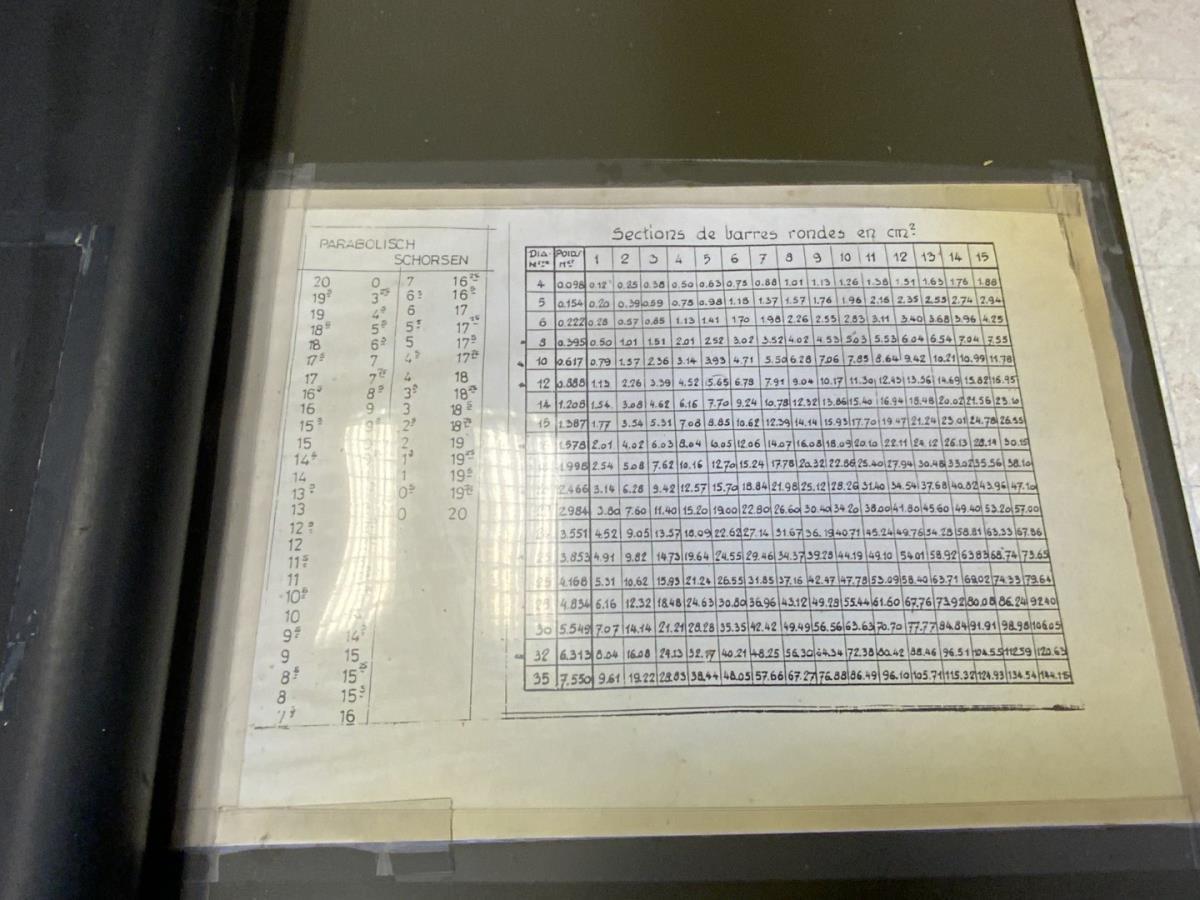 PARABOLISCH
SCHORSEN
20 0 7 16²⁵
19⁵ 3²⁵ 6⁵ 16⁵
19 4⁵ 6 17
18⁵ 5⁵ 5⁵ 17²⁵
18 6⁵ 5 17⁵
17⁵ 7 4⁵ 17⁷⁵
17 7⁷⁵ 4 18
16⁵ 8⁵ 3⁵ 18²⁵
16 9 3 18⁵
15⁵ 9⁵ 2⁵ 18⁷⁵
15 2 19
14⁵ 1⁵ 19²⁵
14 1 19⁵
13⁵ 0⁵ 19⁷⁵
13 0 20
12⁵
12
11⁵
11
10⁵
10
9⁵ 14⁵
9 15
8⁵ 15²⁵
8 15⁵
7⁵ 16
Sections de barres rondes en cm²
DIA- POIDS 1 2 3 4 5 6 7 8 9 10 11 12 13 14 15
4 0.098 0.12 0.25 0.38 0.50 0.63 0.75 0.88 1.01 1.13 1.26 1.38 1.51 1.63 1.76 1.88
5 0.154 0.20 0.39 0.59 0.78 0.98 1.18 1.37 1.57 1.76 1.96 2.16 2.35 2.55 2.74 2.94
6 0.222 0.28 0.57 0.85 1.13 1.41 1.70 1.98 2.26 2.55 2.83 3.11 3.40 3.68 3.96 4.25
8 0.395 0.50 1.01 1.51 2.01 2.52 3.02 3.52 4.02 4.53 5.03 5.53 6.04 6.54 7.04 7.55
10 0.617 0.79 1.57 2.36 3.14 3.93 4.71 5.50 6.28 7.06 7.85 8.64 9.42 10.21 10.99 11.78
12 0.888 1.13 2.26 3.39 4.52 5.65 6.78 7.91 9.04 10.17 11.30 12.43 13.56 14.69 15.82 16.95
14 1.208 1.54 3.08 4.62 6.16 7.70 9.24 10.78 12.32 13.86 15.40 16.94 18.48 20.02 21.56 23.10
15 1.387 1.77 3.54 5.31 7.08 8.85 10.62 12.39 14.14 15.93 17.70 19.47 21.24 23.01 24.78 26.55
1.578 2.01 4.02 6.03 8.04 10.05 12.06 14.07 16.08 18.09 20.10 22.11 24.12 26.13 28.14 30.15
1.998 2.54 5.08 7.62 10.16 12.70 15.24 17.78 20.32 22.86 25.40 27.94 30.48 33.02 35.56 38.10
2.466 3.14 6.28 9.42 12.57 15.70 18.84 21.98 25.12 28.26 31.40 34.54 37.68 40.82 43.96 47.10
2.984 3.80 7.60 11.40 15.20 19.00 22.80 26.60 30.40 34.20 38.00 41.80 45.60 49.40 53.20 57.00
3.551 4.52 9.05 13.57 18.09 22.62 27.14 31.67 36.19 40.71 45.24 49.76 54.28 58.81 63.33 67.86
3.853 4.91 9.82 14.73 19.64 24.55 29.46 34.37 39.28 44.19 49.10 54.01 58.92 63.83 68.74 73.65
4.168 5.31 10.62 15.93 21.24 26.55 31.85 37.16 42.47 47.78 53.09 58.40 63.71 69.02 74.33 79.64
28 4.834 6.16 12.32 18.48 24.63 30.80 36.96 43.12 49.28 55.44 61.60 67.76 73.92 80.08 86.24 92.40
30 5.549 7.07 14.14 21.21 28.28 35.35 42.42 49.49 56.56 63.63 70.70 77.77 84.84 91.91 98.98 106.05
32 6.313 8.04 16.08 24.13 32.17 40.21 48.25 56.30 64.34 72.38 80.42 88.46 96.51 104.55 112.59 120.63
35 7.550 9.61 19.22 28.83 38.44 48.05 57.66 67.27 76.88 86.49 96.10 105.71 115.32 124.93 134.54 144.15